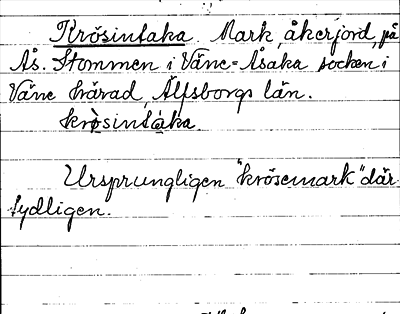 Krösintaka. Mark, åkerjord, på
Ås. Stommen i Väne-Åsaka socken i
Väne härad, Älfsborgs län.
krösintåka.
Ursprungligen "krösemark" där
tydligen.